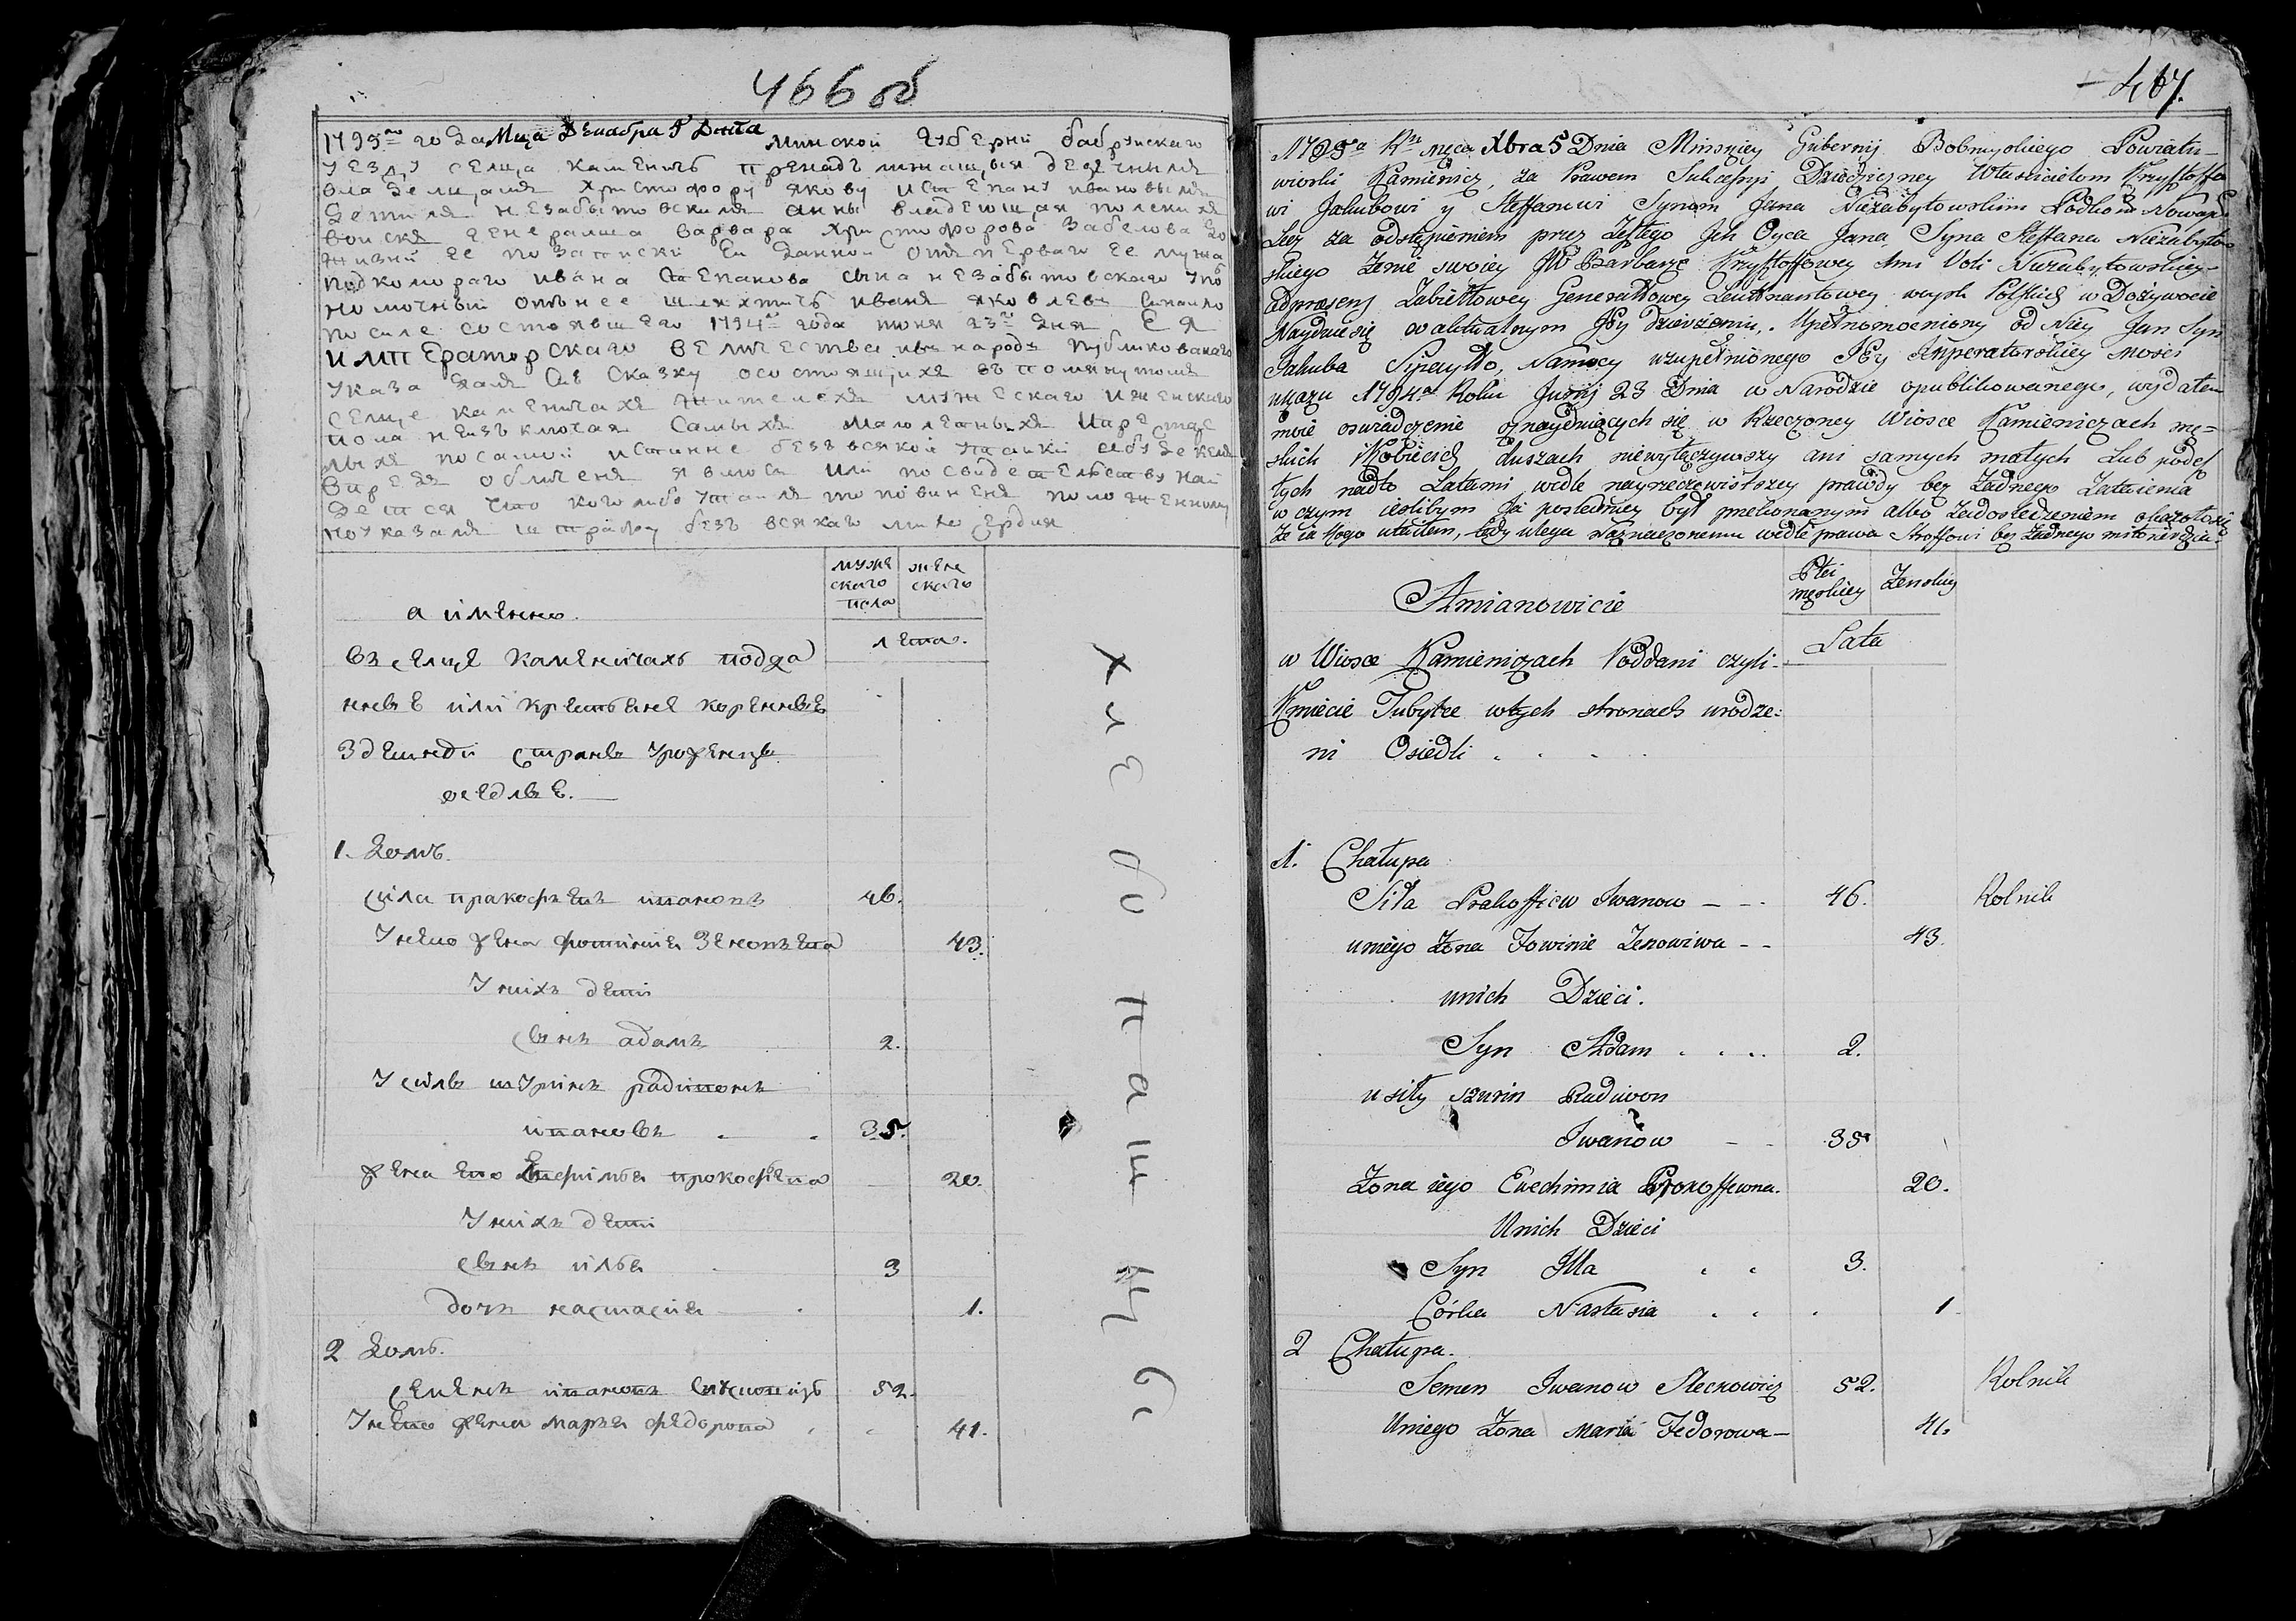 466 об
1795го года Мца Декабра 5 Дня Минской Губерни бабруйскаго
уезду селца каменичъ пренадълижащыя дедичнымъ
владелцамъ христофору якову и степану ивановымъ
детямъ незабытовскимъ анны владеющая полскихъ
войскъ генералша варвара христофорова Забелова до
жизни ее по записки ей данной отъ перваго ее мужа
подкоморого ивана степанова сына незабытовскаго упо
номочный отънее шляхтичъ иванъ яковлевъ
по силе состоявшего 1794го года июня 23го дня Ея
императорскаго величества въ народъ публикованаго
указа далъ сию сказку о состоящихъ въ помянутомъ
селце каменичахъ жителехъ мужескаго и женскаго
пола неизъключая самыхъ малолетныхъ и престаре
лыхъ по самой истинне безъ всякой утайки а буде кемъ
впредь обличенъ явлюсь или по свидетелству най
дется что кого либо утаилъ то повиненъ положенному
по указамъ штрафу безъ всякаго милосердия
муже
скаго
пола
жен
скаго
а именно.
лета.
въ селце Каменичахъ подда
нные или крестьяне коренные
здешней страны уроженцы
оседлые.
1. домъ.
сила пракофьевъ ивановъ 46.
унево жена фотиния зеновьева 43.
у нихъ дети
сынъ адамъ 2.
у силы шуринъ радивонъ
ивановъ 35.
жена ево евфимья прокофьева 20.
у нихъ дети
сынъ илья 3
дочъ настасия 1.
2 домъ.
семенъ ивановъ 52.
унево жена марья федорова 41.
467.
1795a Ru mca Xbra 5 Dnia Minskiey Gubernij Bobruyskiego Powiatu
wioski Kamienicz, za Prawem Sukcessyi Dziedziczney Włascicielom Krzysztoffo
wi Jakubowi y Steffanowi Synom Jana Niezabytowskim
Lecz za odstąpieniem przez Tegtego Jch Oyca Jana Syna Steffana Niezabytow
skiego Zenie swoiey JW Barbarze Krzysztoffowey Niezabytowskiey
Zabiełłowey Generałłowey Leutnantowey woysk Polskich w Dożywocie
Nayduie się w aktualnym Jey dzierżeniu. Upełnomocniony od Niey Jan Syn
Jakuba Namocy wzupełnionego JEy Jmperatorskiey Mosci
ukazu 1794a Roku Junij 23 Dnia w Narodzie opublikowanego, wydałem
moie oswiadczenie oznayduiących się w Rzeczoney Wiosce Kamieniczach mę=
skich Kobiecich duszach niewyłączywszy ani samych małych Lub podesz
łych nadto Latami wedle nayrzeczewistszey prawdy bez Zadnego Zataienia
w czym ieslibym Ja posledniey był prekonanym albo Zadosledzeniem okazałosię
Ze ia Kogo utaiłem, tedy ulegu Naznaczonemu wedle prawa Stroffowi bez Zadnego miłosierdzia.
Płci
męskiey
Zenskiey
Amianowicie
Lata
w Wiosce Kamieniczach Poddani czyli
Kmiecie Tubylce wtych stronach urodze:
ni Osiedli
1. Chałupa
Siła Prakoffiew Iwanow 46. Rolnik
uniego Zona Fowinie Zenowiwa 43.
unich Dzieci.
Syn Adam 2.
u siły szurin Radiwon
Iwanow 35
Zona iego Ewchimia Prokoffewna. 20.
Unich Dzieci
Syn Illa 3.
Córka Nastasia 1
2 Chałupa.
Semen Iwanow Steckowicz 52. Rolnik
Uniego Zona Maria Fedorowa 41.